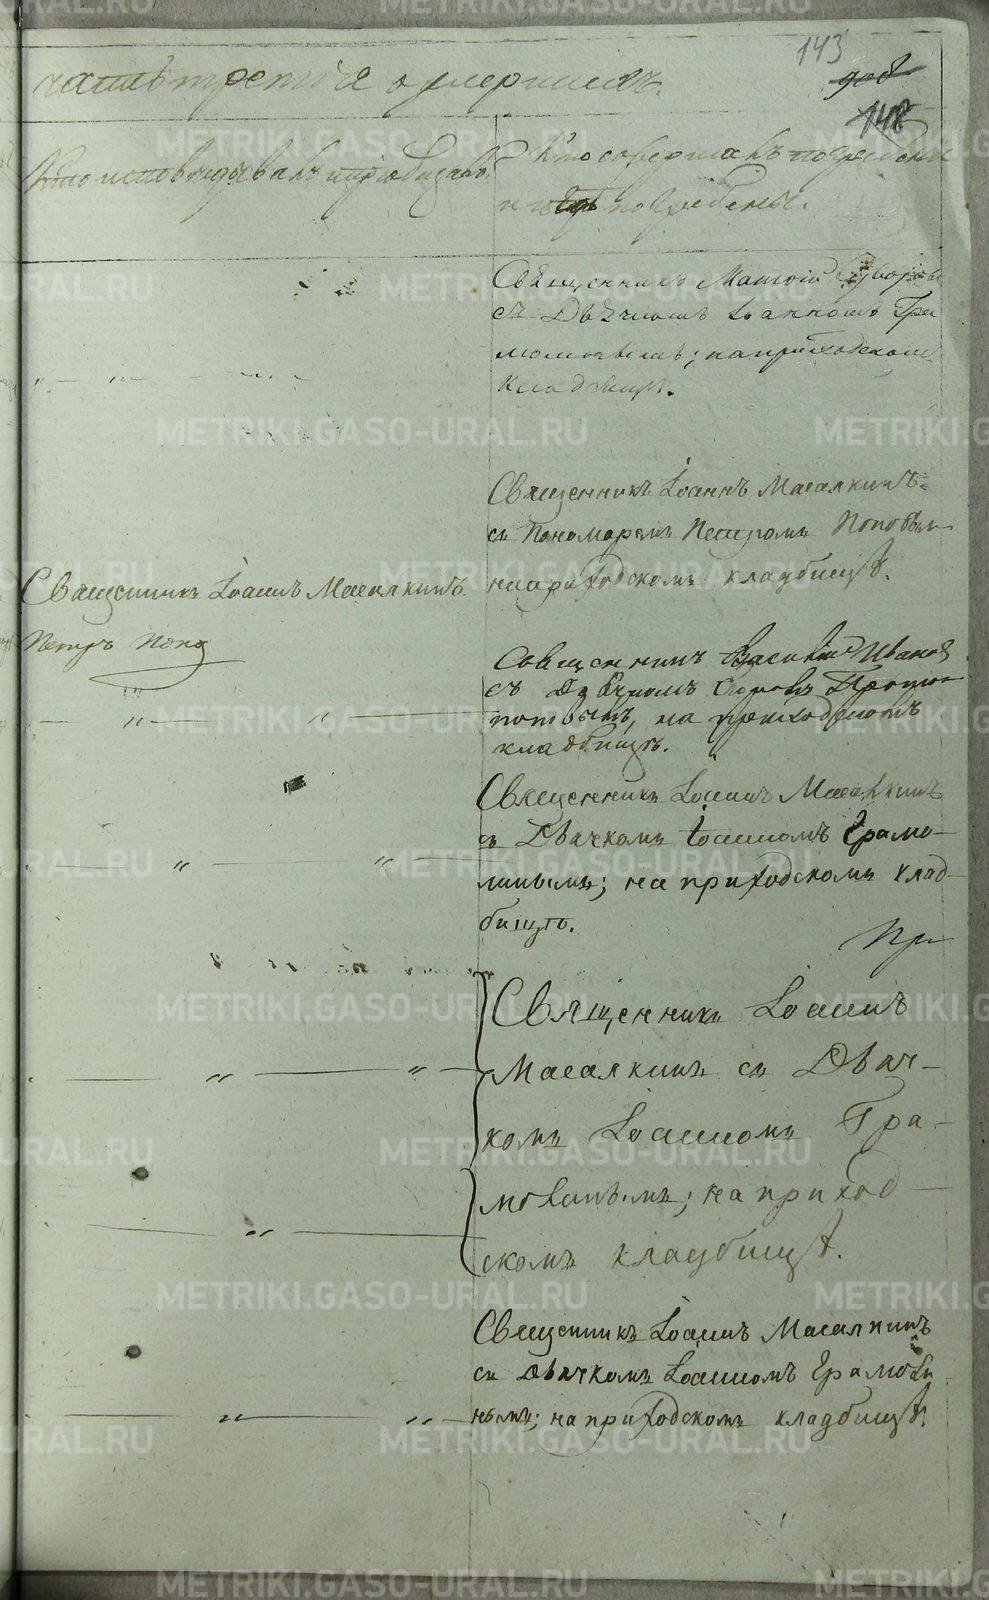 143
148
часть третія о умершихъ
Кто исповѣдывалъ и пріобщалъ
Кто совершалъ погребеніе
и гдѣ погребены.
Священникъ Матѳій Суворовъ
съ Дьячкомъ Іоанномъ Гра
на приходскомъ
кладбищѣ.
Священникъ Іоаннъ Масалкинъ
съ Пономаремъ Петромъ Поповым
на приходскомъ кладбищѣ.
Священникъ Іоаннъ Масалкинъ
Петръ Попо
Священникъ Василій Иванов
съ Дьячкомъ
поповымъ, на приходскомъ
кладбищѣ.
Священникъ Іоаннъ Масалкинъ
съ Дьячкомъ Іоанномъ Грамо-
линымъ; на приходскомъ клад-
бищѣ.
При
Священникъ Іоаннъ
Масалкинъ съ Дьяч-
комъ Іоанномъ Гра-
молинымъ; на приход-
скомъ кладбищѣ.
Священникъ Іоаннъ Масалкинъ
съ Дьячкомъ Іоанномъ Грамоли
нымъ; на приходскомъ кладбищѣ.
METRIKI.GASO-URAL.RU